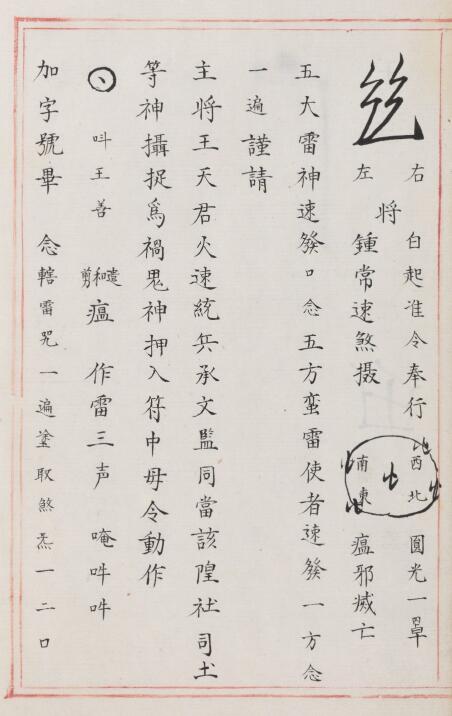 右 白起准令奉行 西北 圓光一罩
將
左 鍾常速煞摄 南東 瘟邪滅亡
五大雷神速發口念五方蛮雷使者速發一方念
一遍謹請
主將王天君火速統兵承文監同當該隍社司土
等神攝捉爲禍鬼神押入符中毋令動作
呌王善 和瘟 作雷三声 唵吽吽
加字號畢 念轄雷咒一遍塗取煞炁一二口